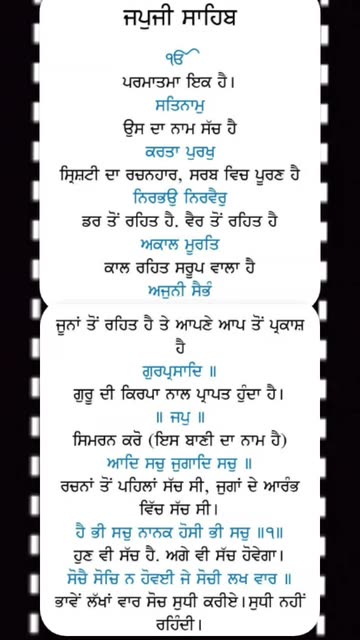 ਜਪੁਜੀ ਸਾਹਿਬ
ੴ
ਪਰਮਾਤਮਾ ਇਕ ਹੈ।
ਸਤਿਨਾਮੁ
ਉਸ ਦਾ ਨਾਮ ਸੱਚ ਹੈ
ਕਰਤਾ ਪੁਰਖੁ
ਸ੍ਰਿਸ਼ਟੀ ਦਾ ਰਚਨਹਾਰ, ਸਰਬ ਵਿਚ ਪੂਰਣ ਹੈ
ਨਿਰਭਉ ਨਿਰਵੈਰੁ
ਡਰ ਤੋਂ ਰਹਿਤ ਹੈ. ਵੈਰ ਤੋਂ ਰਹਿਤ ਹੈ
ਅਕਾਲ ਮੂਰਤਿ
ਕਾਲ ਰਹਿਤ ਸਰੂਪ ਵਾਲਾ ਹੈ
ਅਜੁਨੀ ਸੈਭੰ
ਜੂਨਾਂ ਤੋਂ ਰਹਿਤ ਹੈ ਤੇ ਆਪਣੇ ਆਪ ਤੋਂ ਪ੍ਰਕਾਸ਼
ਹੈ
ਗੁਰਪ੍ਰਸਾਦਿ ॥
ਗੁਰੂ ਦੀ ਕਿਰਪਾ ਨਾਲ ਪ੍ਰਾਪਤ ਹੁੰਦਾ ਹੈ।
॥ ਜਪੁ ॥
ਸਿਮਰਨ ਕਰੋ (ਇਸ ਬਾਣੀ ਦਾ ਨਾਮ ਹੈ)
ਆਦਿ ਸਚੁ ਜੁਗਾਦਿ ਸਚੁ ॥
ਰਚਨਾਂ ਤੋਂ ਪਹਿਲਾਂ ਸੱਚ ਸੀ, ਜੁਗਾਂ ਦੇ ਆਰੰਭ
ਵਿੱਚ ਸੱਚ ਸੀ।
ਹੈ ਭੀ ਸਚੁ ਨਾਨਕ ਹੋਸੀ ਭੀ ਸਚੁ ॥੧॥
ਹੁਣ ਵੀ ਸੱਚ ਹੈ. ਅਗੇ ਵੀ ਸੱਚ ਹੋਵੇਗਾ।
ਸੋਚੈ ਸੋਚਿ ਨ ਹੋਵਈ ਜੇ ਸੋਚੀ ਲਖ ਵਾਰ ॥
ਭਾਵੇਂ ਲੱਖਾਂ ਵਾਰ ਸੋਚ ਸੁਧੀ ਕਰੀਏ। ਸੁਧੀ ਨਹੀਂ
ਰਹਿੰਦੀ।